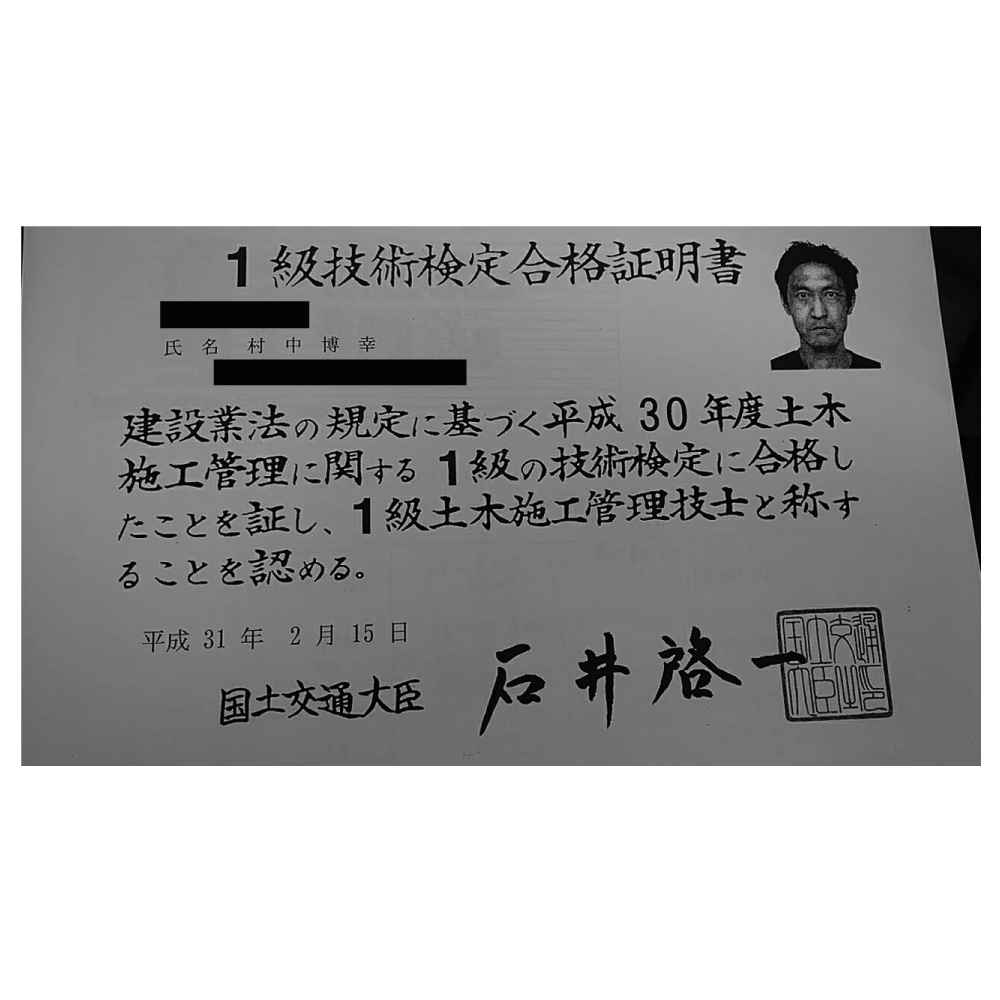 1級技術検定合格証明書
氏名 村中博幸
建設業法の規定に基づく平成30年度土木
施工管理に関する1級の技術検定に合格し
たことを証し、1級土木施工管理技士と称す
ることを認める。
平成31年2月15日
国土交通大臣 石井啓一